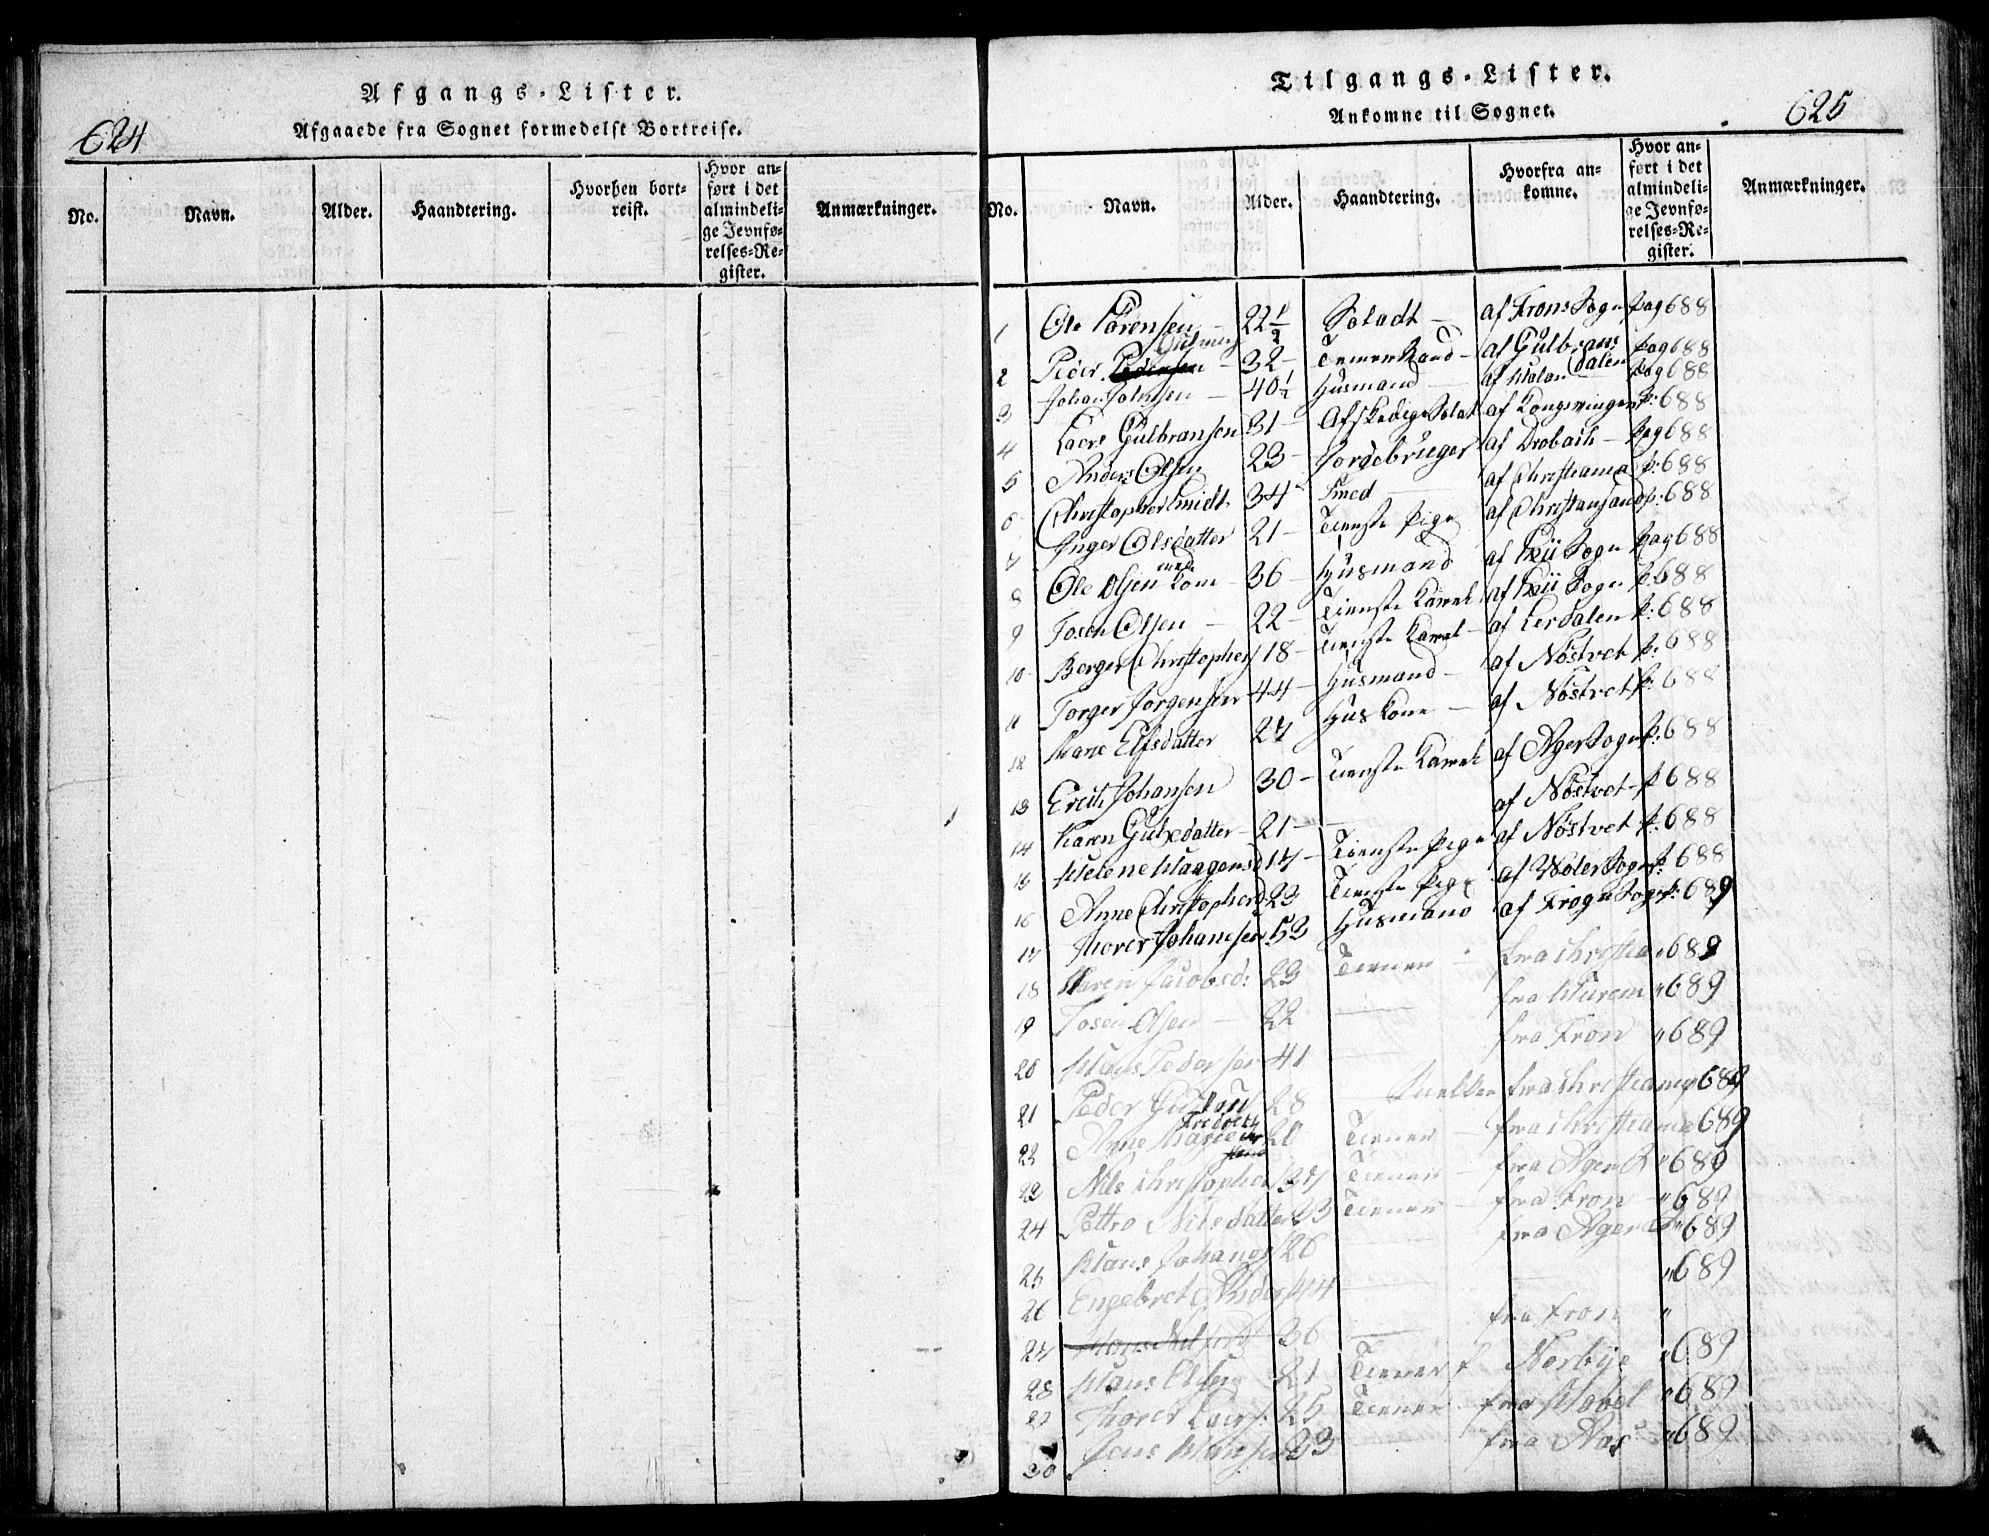 624
Afgangs-Lister.
Afgaaede fra Sognet formedelst Bortreise.
No. Navn. Alder. Haandtering. Hvorhen bortreist. Hvor anført i det almindelige Jevnførelses-Register. Anmærkninger.
Tilgangs-Lister.
Ankomne til Sognet.
625
No. Navn. Alder. Haandtering. Hvorfra ankomne. Hvor anført i det almindelige Jevnførelses-Register. Anmærkninger.
1 Ole Sörensen 22½ Soladt af Frons Sogn pag 688
2 Peder 32 Temerkand af Gulbransdalen pag 688
3 Johan Johnsen 40½ Husmand pag 688
4 Laers Gulbransen 31 Afskediget Solat af Kongsvinger p: 688
5 Anders Olsen 23 Jordebruger af Drobach pag 688
6 Christopher Smidt 34 Smed af Christiania p: 688
7 Inger Olsdatter 21 Tieneste Pige af Christiansand p: 688
8 Ole Olsen med Kone 36 Husmand af Sogn pag 688
9 Tosten Olsen 22 Tieneste Karel af Sogn p: 688
10 Berger Christophers 18 Tieneste Karel af Lerdalen p: 688
11 Torger Jorgensen 44 Husmand af Nöstvet p: 688
12 Marie Elfsdatter 27 Huskone af Nöstvet p: 688
13 Erich Johansen 30 Tieneste Karel af Ager Sogn p: 688
14 Karen Gulsdatter 21 af Nöstvet p 688
15 Helene Haagensd 17 Tieneste Pige af Nöstvet p: 688
16 Anne Christopherd 23 Tieneste Pige af Woler Sogn p 688
17 Thorer Johanesen 53 Husmand af Frogn Sogn p: 689
18 Karen Jacobsd: 23 Tiener fra Christia " 689
19 Tosten Olsen 22 fra Hurem " 689
20 Hans Pedersen 41 fra Fron " 689
21 Peder 28 fra Christiania 689
22 Anne Marie 20 Tiener fra Christiania 689
23 Nils Christophers 37 Tiener fra Ager " 689
24 Pettro Nilsdatter 23 Tiener fra Fron " 689
25 Hans Johanes 26 fra Ager " 689
26 Engebret Anders 44 " 689
27 36 fra Fron "
28 Hans 21 Tiener f Norbye " 689
29 Thorer Laers: 25 Tiener fra " 689
30 Jens Hansen 23 fra Aas " 689